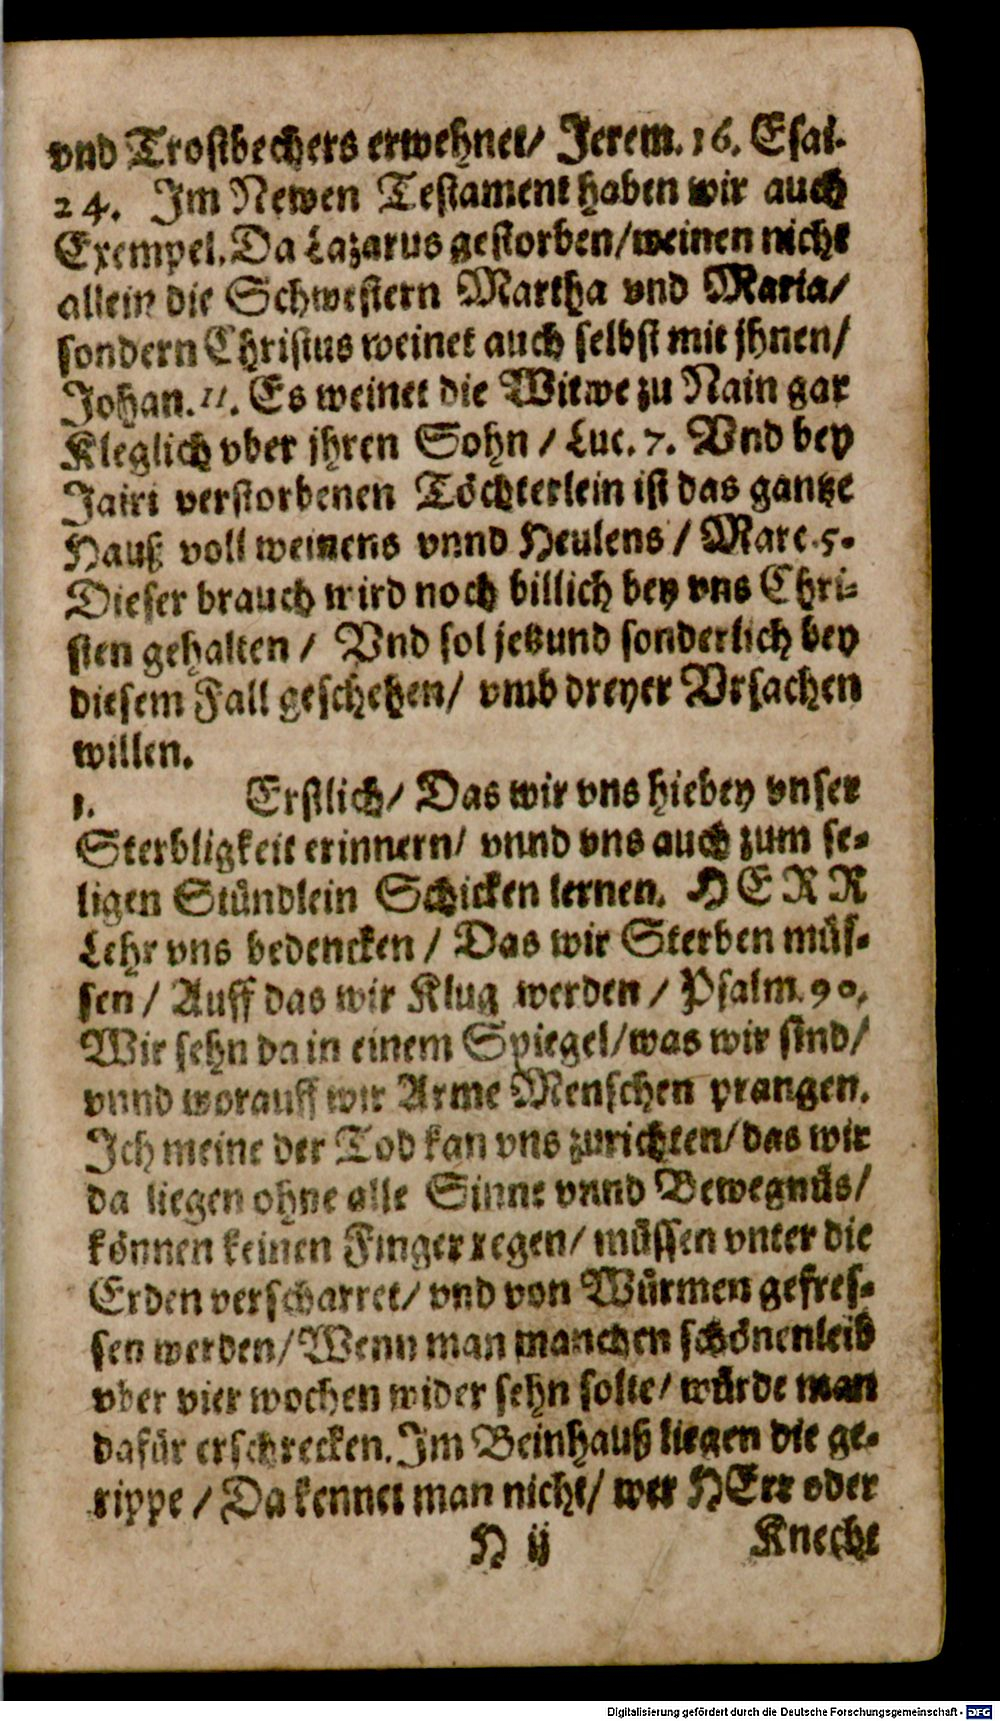 vnd Trostbechers erwehnet/ Jerem. 16. Esai.
24. Im Newen Testament haben wir auch
Exempel. Da Lazarus gestorben/weinen nicht
allein die Schwestern Martha vnd Maria/
sondern Christus weinet auch selbst mit jhnen/
Johan. 11. Es weinet die Witwe zu Nain gar
Kleglich vber jhren Sohn / Luc. 7. Vnd bey
Jairi verstorbenen Töchterlein ist das gantze
Hauß voll weinens vnnd Heulens / Marc. 5.
Dieser brauch wird noch billich bey vns Chri-
sten gehalten / Vnd sol jetzund sonderlich bey
diesem Fall geschehen/ vmb dreyer Vrsachen
willen.
1. Erstlich/ Das wir vns hiebey vnser
Sterbligkeit erinnern/ vnnd vns auch zum se-
ligen Stündlein Schicken lernen. HERR
Lehr vns bedencken / Das wir Sterben müs-
sen / Auff das wir Klug werden / Psalm. 90.
Wir sehn da in einem Spiegel/was wir sind/
vnnd worauff wir Arme Menschen prangen.
Ich meine der Tod kan vns zurichten/das wir
da liegen ohne alle Sinne vnnd Bewegnüs/
können keinen Finger regen/ müssen vnter die
Erden verscharret/ vnd von Würmen gefres-
sen werden/ Wenn man manchen schönen leib
vber vier wochen wider sehn solte/ würde man
dafür erschrecken. Im Beinhauß liegen die ge-
rippe / Da kennet man nicht/ wer HErr oder
H ij Knecht
Digitalisierung gefördert durch die Deutsche Forschungsgemeinschaft - DFG